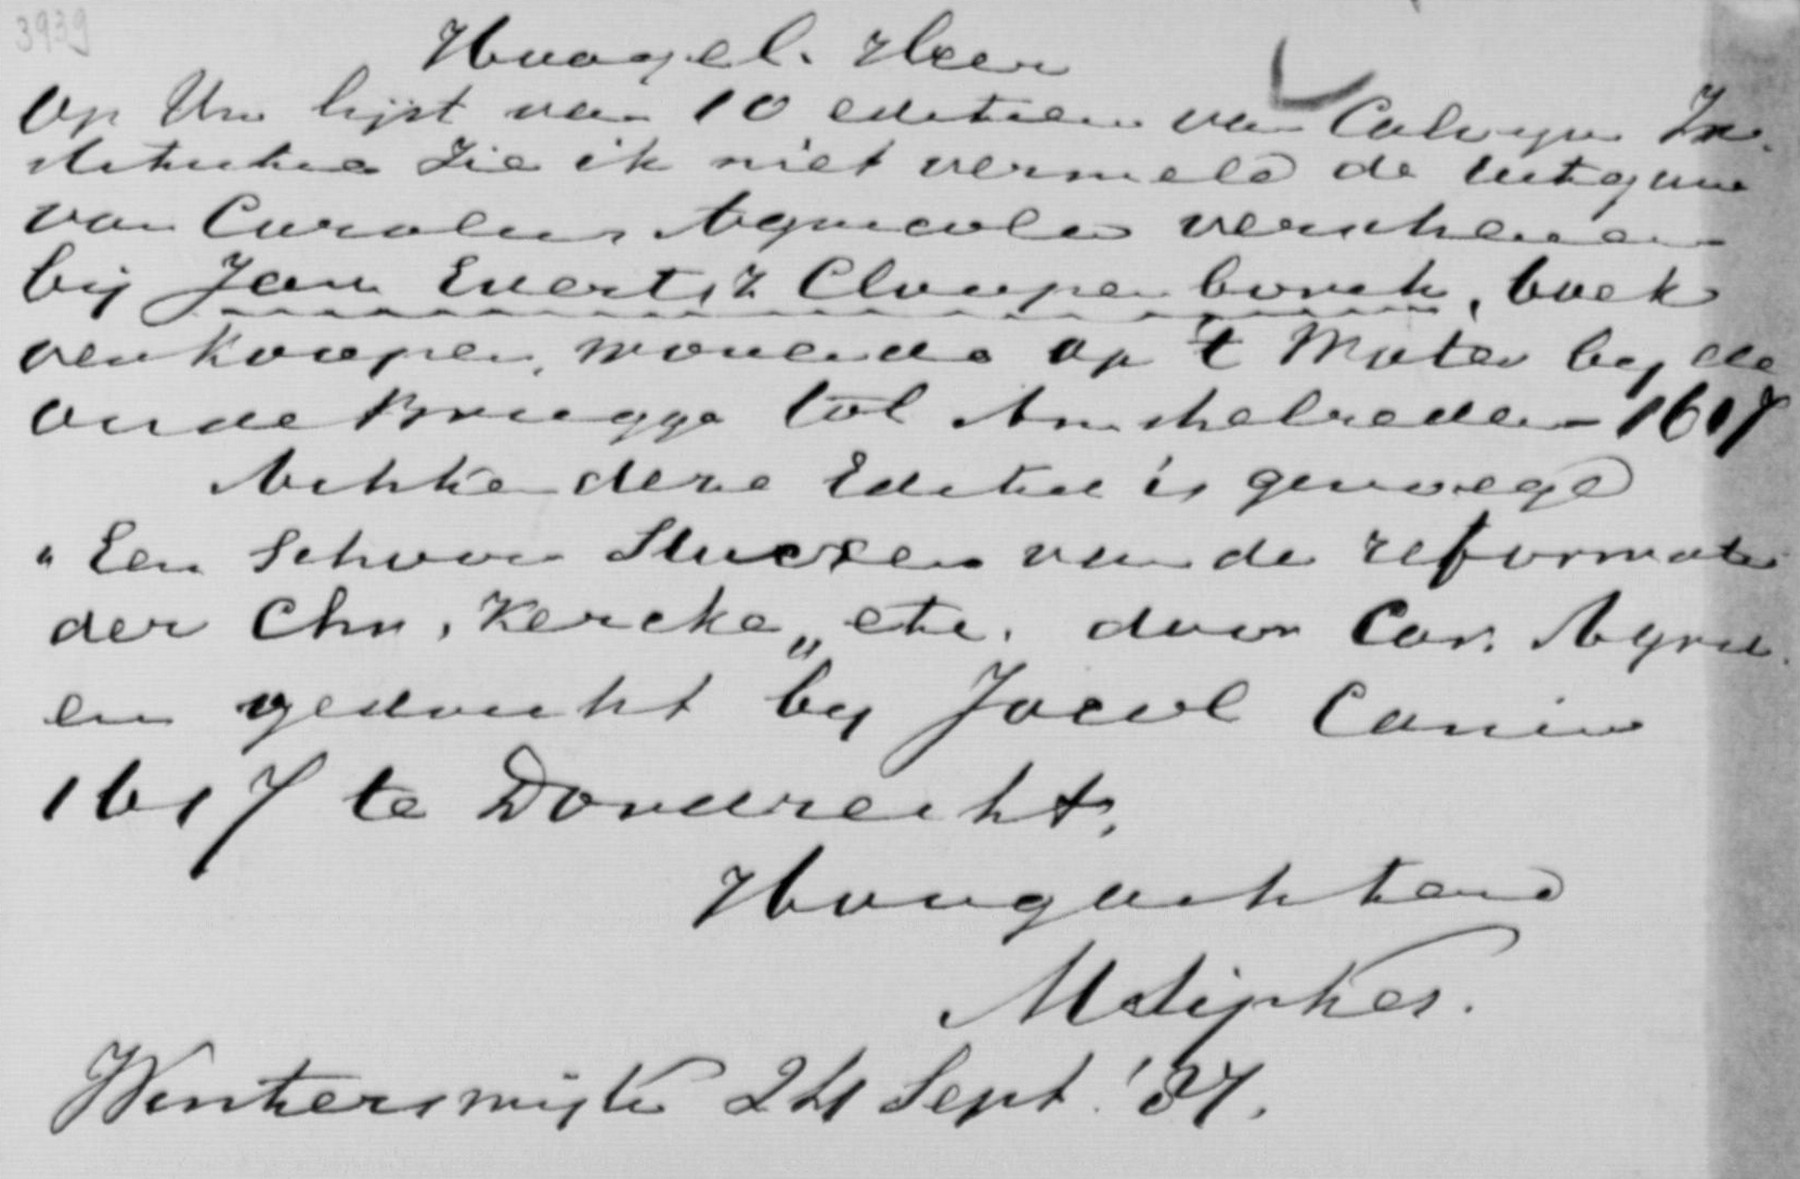 3939
Hoogel. Heer
Op Uw lijst van 10 editien van Calvijn In-
stitutie zie ik niet vermeld de uitgave
van Carolus Agricola verschenen
bij Jan Evertsz Cloppenborch, boek
verkooper, wonende op 't Water bij de
oude Brugge tot Amstelredam 1617
Achter deze Editie is gevoegd
"Een Schoon Stucxen van de reformatie
der Chr. Kercke" etc. door Car. Agric.
en gedruckt by Jacob Canin
1617 te Dordrecht.
Hoogachtend

Winterswijk 24 Sept. '37.